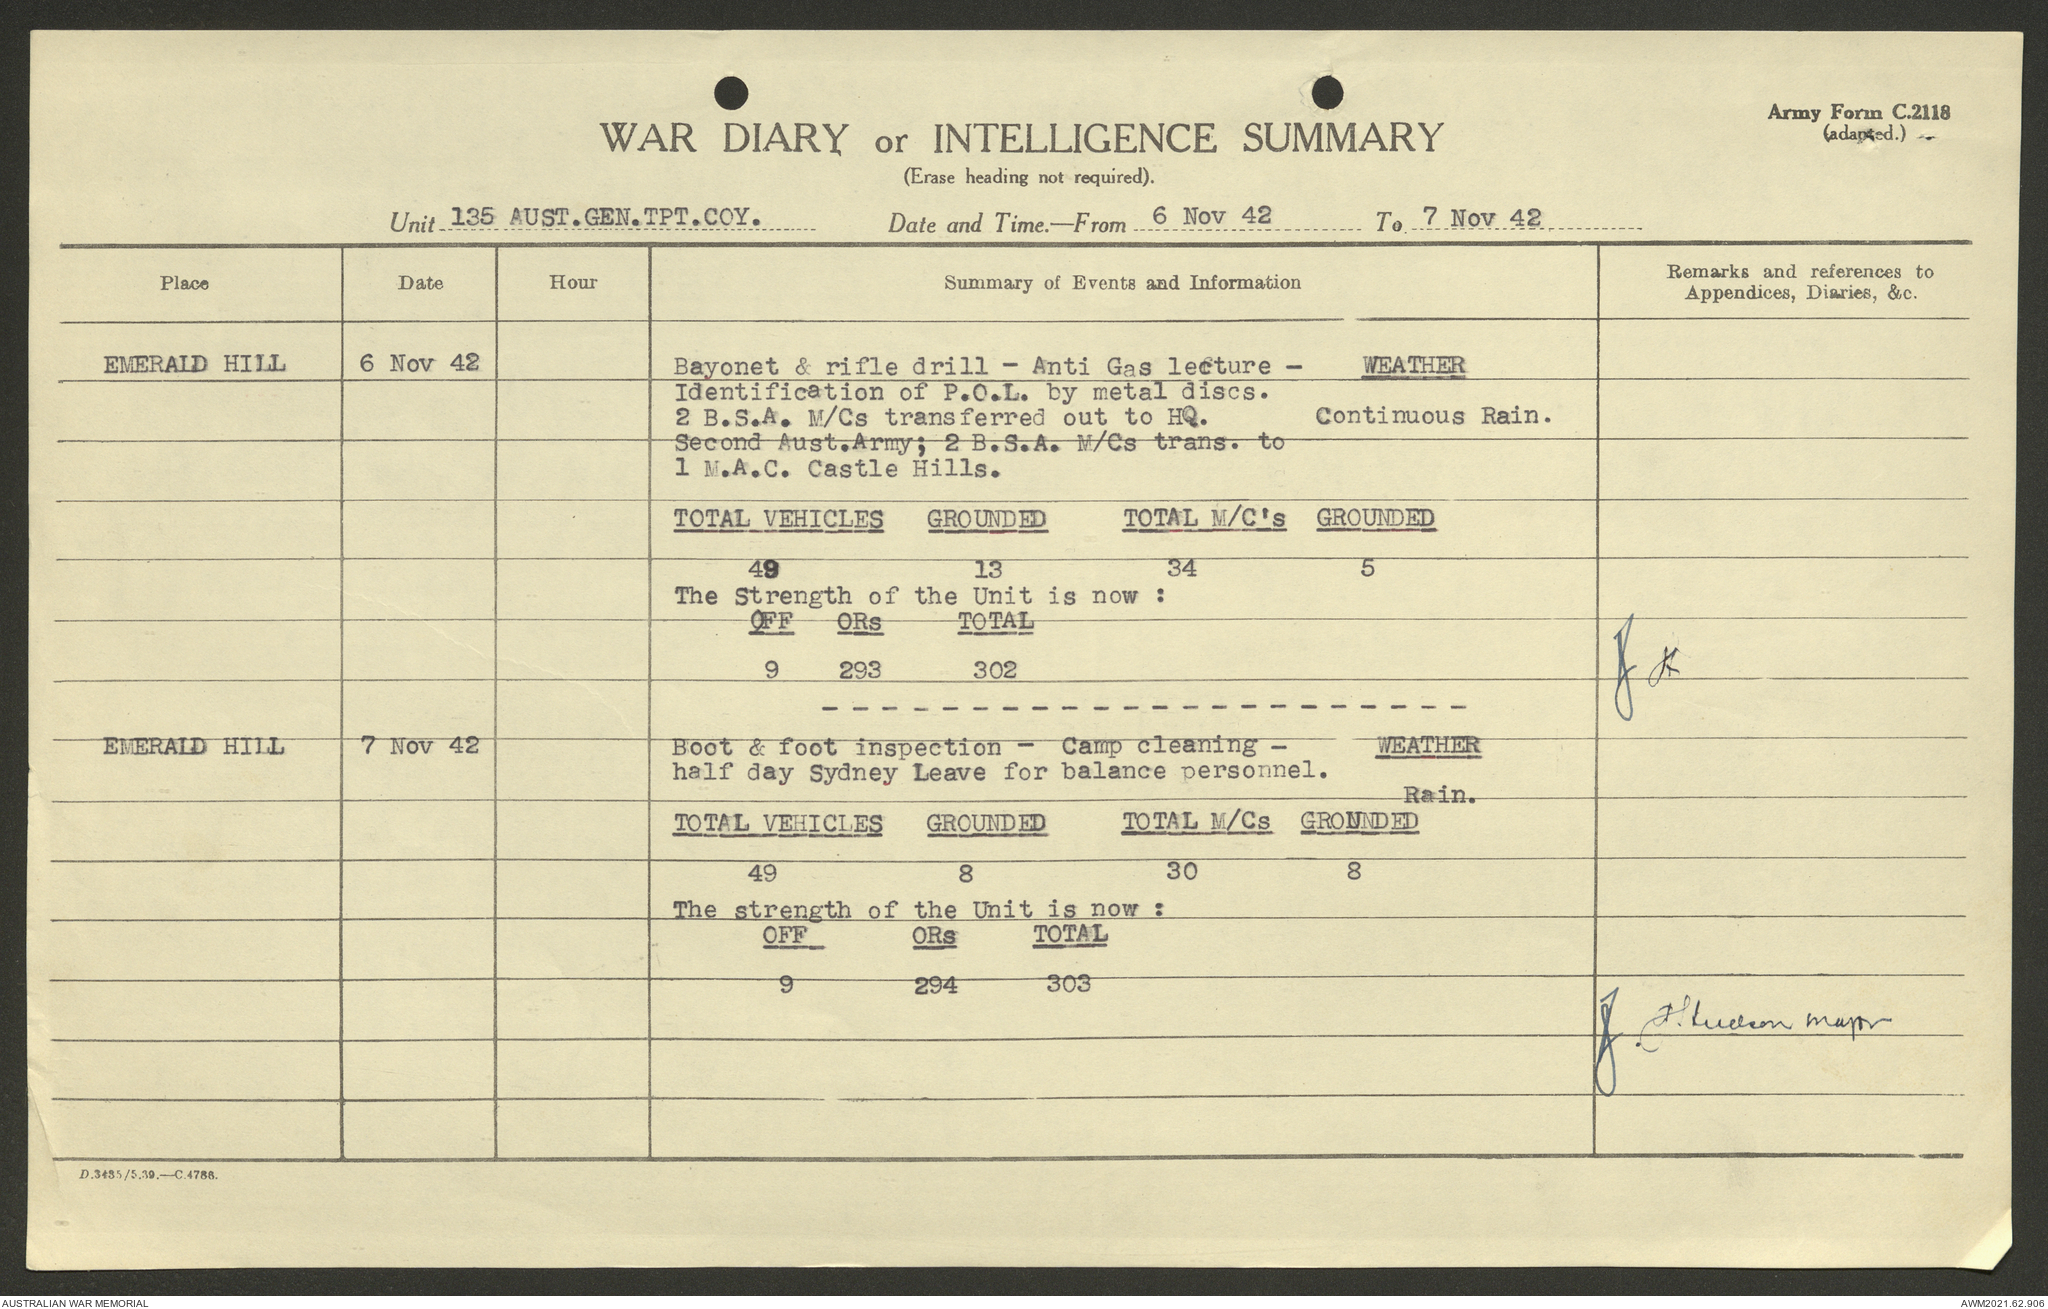 Army Form C.2118
(adapted.)
WAR DIARY or INTELLIGENCE SUMMARY
(Erase heading not required).
Unit 135 AUST.GEN.TPT.COY. Date and Time.—From 6 Nov 42 To 7 Nov 42
Place Date Hour Summary of Events and Information Remarks and references to
Appendices, Diaries, &c.
EMERALD HILL 6 Nov 42 Bayonet & rifle drill - Anti Gas lecture - WEATHER
Identification of P.O.L. by metal discs.
2 B.S.A. M/Cs transferred out to HQ. Continuous Rain.
Second Aust.Army; 2 B.S.A. M/Cs trans. to
1 M.A.C. Castle Hills.
TOTAL VEHICLES GROUNDED TOTAL M/C's GROUNDED
49 13 34 5
The Strength of the Unit is now :
OFF ORs TOTAL
9 293 302
EMERALD HILL 7 Nov 42 Boot & foot inspection - Camp cleaning - WEATHER
half day Sydney Leave for balance personnel.
Rain.
TOTAL VEHICLES GROUNDED TOTAL M/Cs GROUNDED
49 8 30 8
The strength of the Unit is now :
OFF ORs TOTAL
9 294 303
Hudson Major
D.3435/5.39.—C.4788.
AUSTRALIAN WAR MEMORIAL AWM2021.62.906